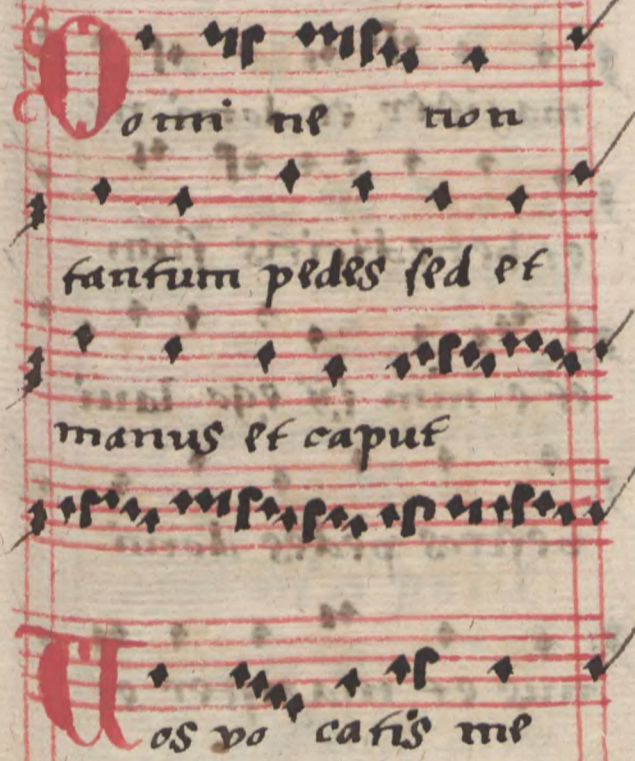 Domi ne non
tantum pedes sed et
manus et caput
Uos vo catis me